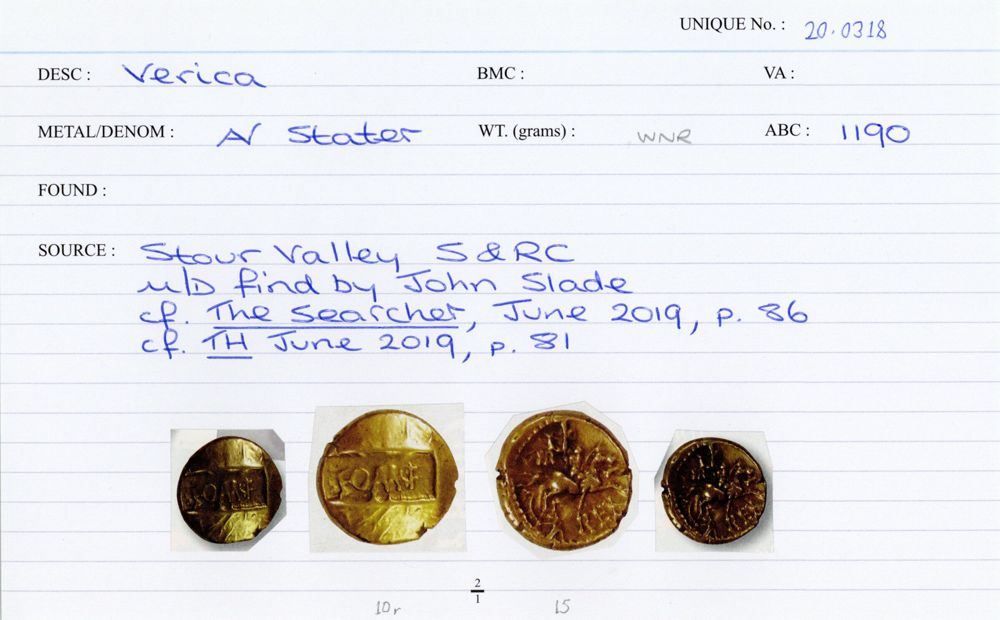 UNIQUE No. : 20.0318
DESC : Verica BMC : VA :
METAL/DENOM : AV Stater WT. (grams) : WNR ABC : 1190
FOUND :
SOURCE : Stour Valley S&RC
m/D find by John Slade
cf. The Searcher, June 2019, p. 86
cf. TH June 2019, p. 81
COM·F
2
1
10r 15